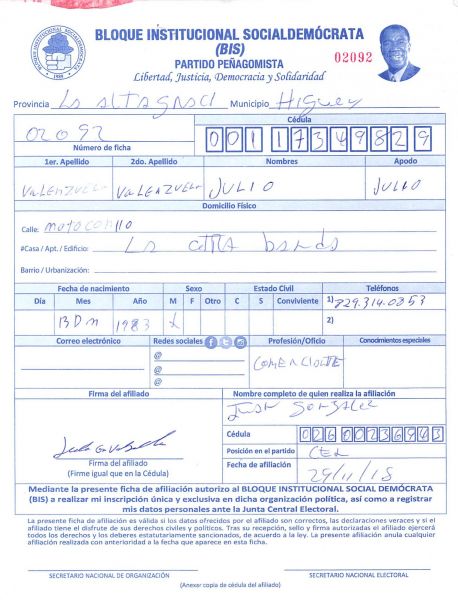 BLOQUE INSTITUCIONAL SOCIALDEMÓCRATA
(BIS)
PARTIDO PEÑAGOMISTA
02092
Libertad, Justicia, Democracia y Solidaridad
BLOQUE INSTITUCIONAL SOCIALDEMOCRATA
Provincia La altagraci Municipio Higuey
Cédula
02092
00117349829
Número de ficha
1er. Apellido 2do. Apellido Nombres Apodo
VALENZUELA VALENZUELA JULIO JULIO
Domicilio Físico
Calle:
#Casa / Apt. / Edificio: La otra banda
Barrio / Urbanización:
Fecha de nacimiento Sexo Estado Civil Teléfonos
Día Mes Año M F Otro C S Conviviente 1) 829.314.0353
1983 X 2)
Correo electrónico Redes sociales Profesión/Oficio Conodmientos especiales
@ COMERCIANTE
@
@
Firma del afiliado Nombre completo de quien realiza la afiliación
Cédula 02600236943
Posición en el partido CEL
Firma del afiliado Fecha de afiliación 29/11/18
(Firme igual que en la Cédula)
Mediante la presente ficha de afiliación autorizo al BLOQUE INSTITUCIONAL SOCIAL DEMÓCRATA
(BIS) a realizar mi inscripción única y exclusiva en dicha organización política, así como a registrar
mis datos personales ante la Junta Central Electoral.
La presente ficha de afiliación es válida si los datos ofrecidos por el afiliado son correctos, las declaraciones veraces y si el
afiliado tiene el disfrute de sus derechos civiles y políticos. Tras su registro, sello y firma autorizados el afiliado ejercerá
todos los derechos y los deberes estatutariamente sancionados, de acuerdo a la ley. La presente afiliación anula cualquier
afiliación realizada con anterioridad a la fecha que aparece en esta ficha.
SECRETARIO NACIONAL DE ORGANIZACIÓN SECRETARIO NACIONAL ELECTORAL
(Anexar copia de cédula del afiliado)